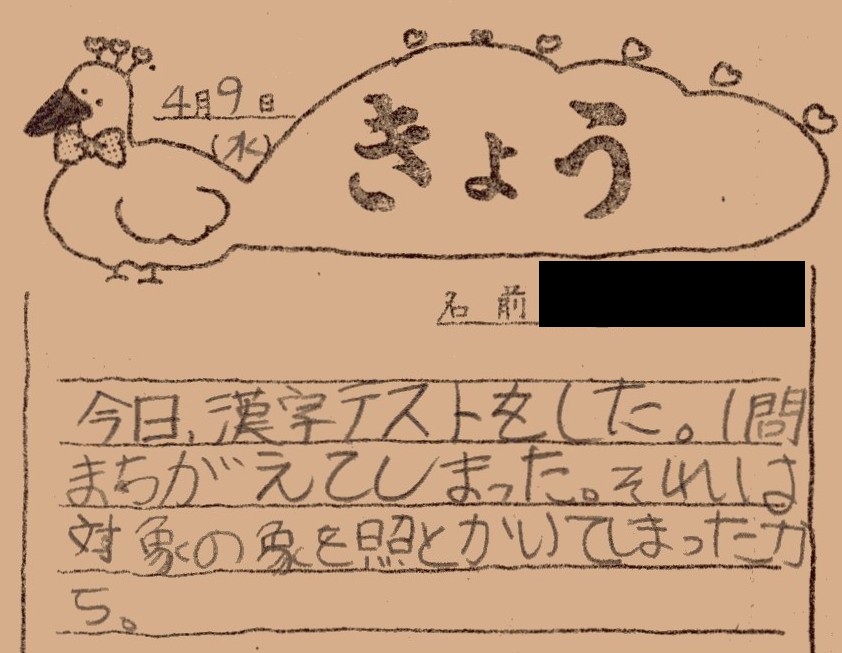 4月9日
(水)
きょう
名前
今日、漢字テストをした。1問
まちがえてしまった。それは
対象の象を照とかいてしまったか
ら。